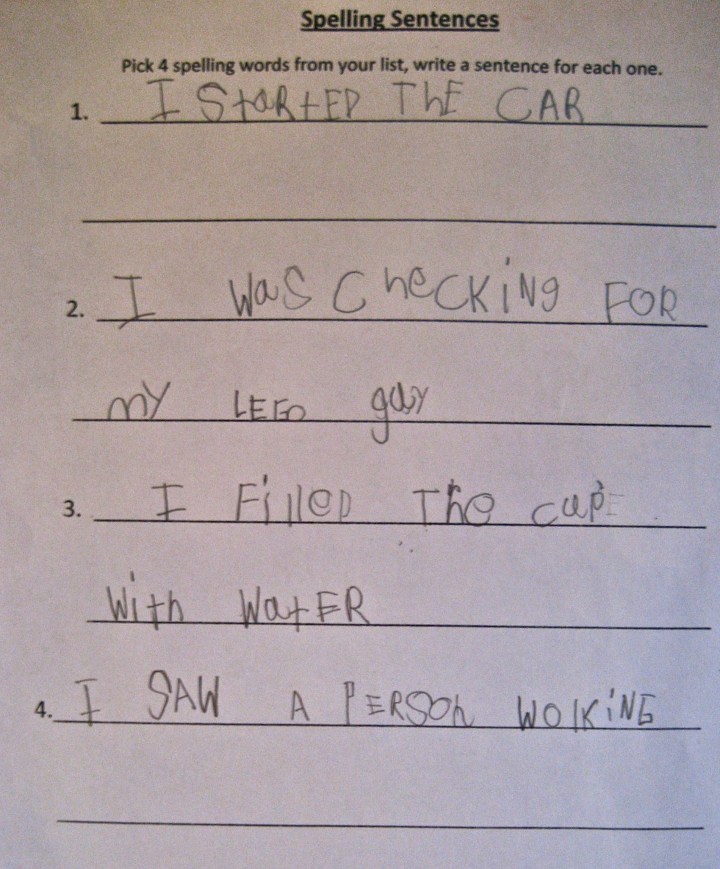 Spelling Sentences
Pick 4 spelling words from your list, write a sentence for each one.
1. I StaRtED ThE CAR
2. I WaS CheCKiNg FOR
mY LEGo guy
3. I FilleD The cup
With WatER
4. I SAW A PERSOn WOlKiNG